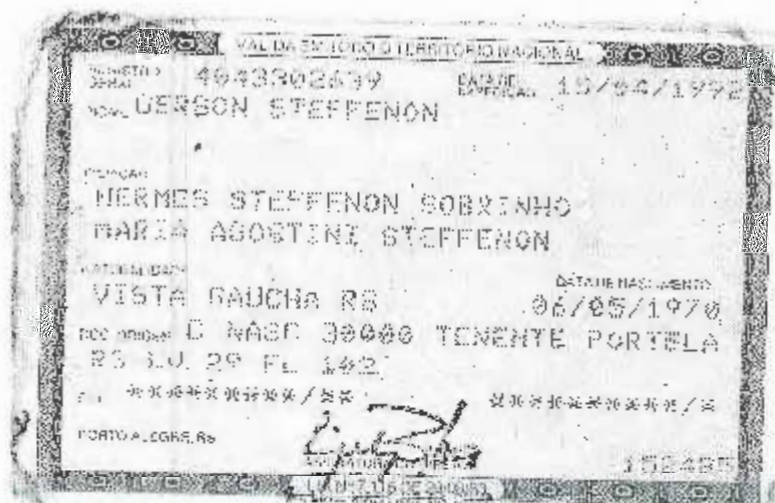 VALIDA EM TODO O TERRITÓRIO NACIONAL
REGISTRO GERAL 4043302639 DATA DE EXPEDIÇÃO 15/04/1992
NOME GERSON STEFFENON
FILIAÇÃO
HERMES STEFFENON SOBRINHO
MARIA AGOSTINI STEFFENON
NATURALIDADE DATA DE NASCIMENTO
VISTA GAUCHA RS 06/05/1970
DOC ORIGEM C NASC 30000 TENENTE PORTELA
RS LV 29 FL 102
*********/** **********/*
PORTO ALEGRE, RS
ASSINATURA DO DIRETOR
LEI Nº 7.116 DE 29/08/83